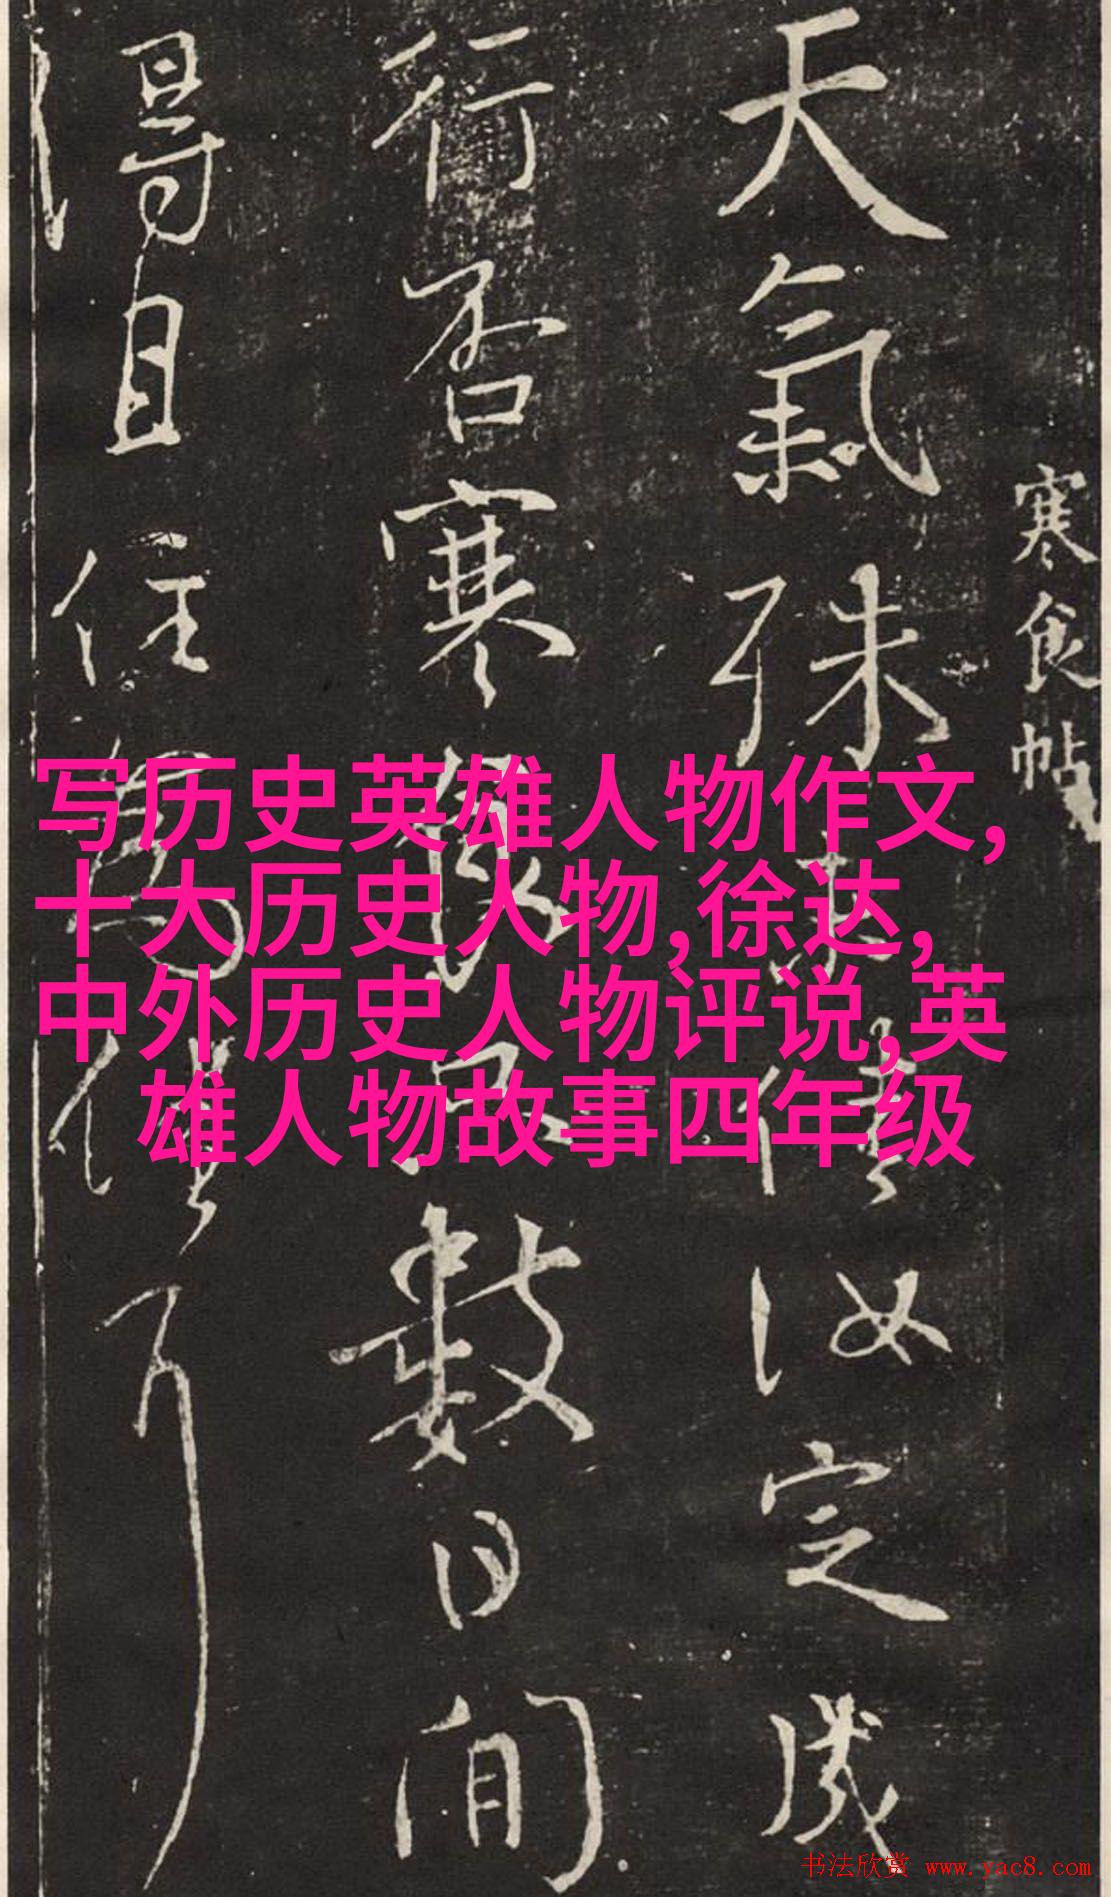 写历史英雄人物作文,
十大历史人物,徐达,
中外历史人物评说,英
雄人物故事四年级
寒食帖
天氣殊未佳汝定成
行否寒食只數日間
得且住為佳耳
书法欣赏 www.yac8.com